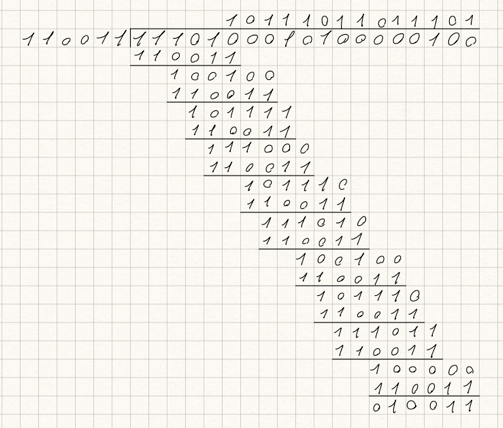 1 0 1 1 1 0 1 1 0 1 1 1 0 1
1 1 0 0 1 1 1 1 1 0 1 0 0 0 1 0 1 0 0 0 0 0 1 0 0
1 1 0 0 1 1
1 0 0 1 0 0
1 1 0 0 1 1
1 0 1 1 1 1
1 1 0 0 1 1
1 1 1 0 0 0
1 1 0 0 1 1
1 0 1 1 1 0
1 1 0 0 1 1
1 1 1 0 1 0
1 1 0 0 1 1
1 0 0 1 0 0
1 1 0 0 1 1
1 0 1 1 1 0
1 1 0 0 1 1
1 1 1 0 1 1
1 1 0 0 1 1
1 0 0 0 0 0
1 1 0 0 1 1
0 1 0 0 1 1